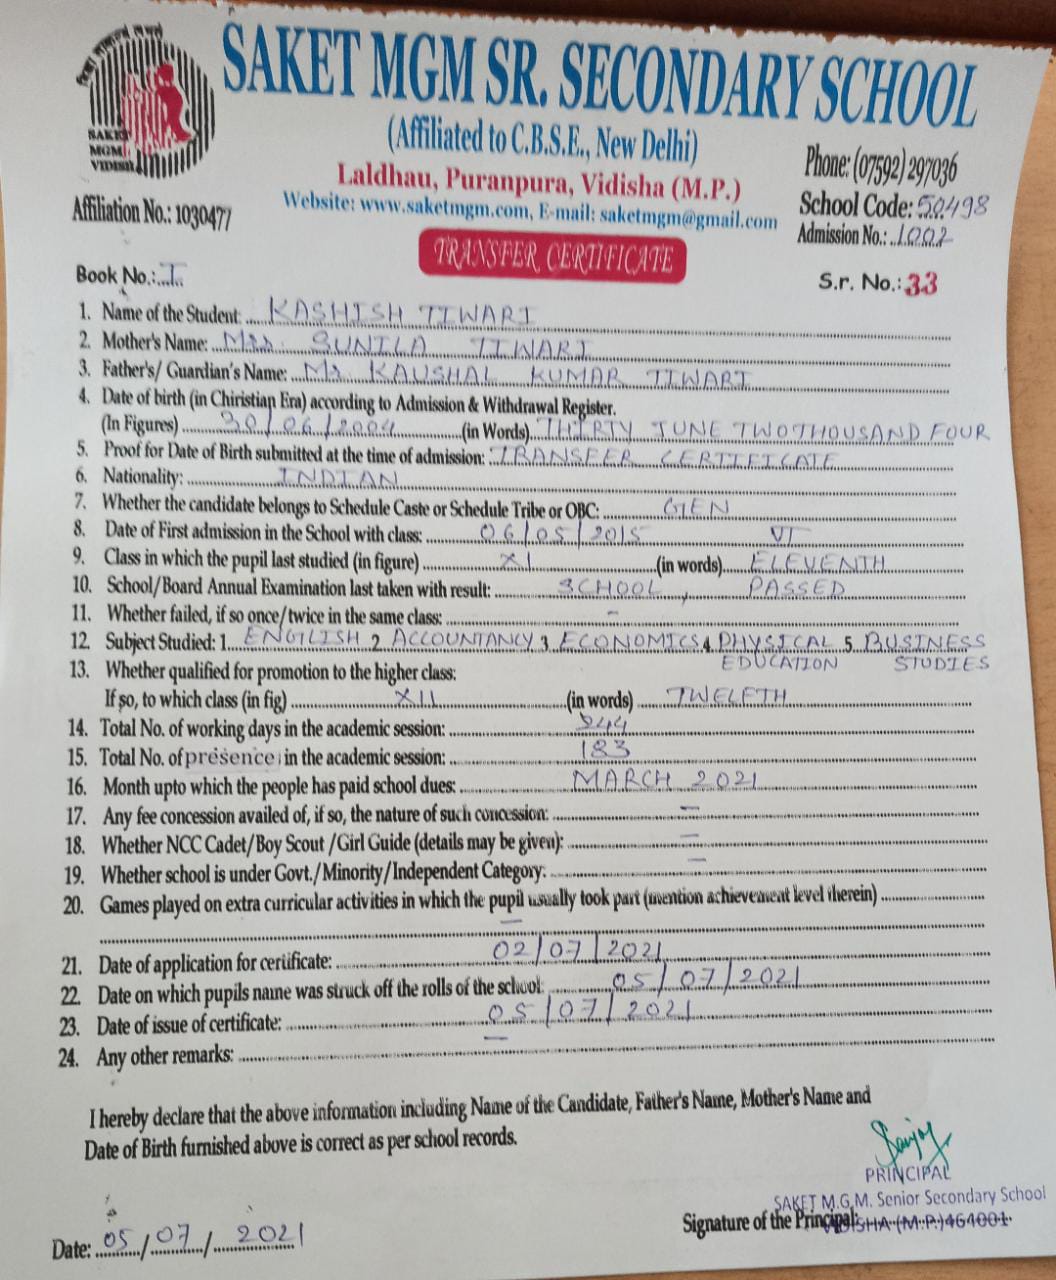 SAKET MGM SR. SECONDARY SCHOOL
(Affiliated to C.B.S.E., New Delhi)
Laldhau, Puranpura, Vidisha (M.P.)
Website: www.saketmgm.com, E-mail: saketmgm@gmail.com
SAKET
MGM
VIDISHA
Affiliation No.: 1030477
Phone: (07592) 297036
School Code: 50498
Admission No.: 1002
TRANSFER CERTIFICATE
Book No.: I
S.r. No.: 33
1. Name of the Student: KASHISH TIWARI
2. Mother's Name: Mrs. SUNILA TIWARI
3. Father's/ Guardian's Name: Mr KAUSHAL KUMAR TIWARI
4. Date of birth (in Chiristian Era) according to Admission & Withdrawal Register.
(In Figures) 30/06/2004 (in Words) THIRTY JUNE TWO THOUSAND FOUR
5. Proof for Date of Birth submitted at the time of admission: TRANSFER CERTIFICATE
6. Nationality: INDIAN
7. Whether the candidate belongs to Schedule Caste or Schedule Tribe or OBC: GEN
8. Date of First admission in the School with class: 06/05/2015 VI
9. Class in which the pupil last studied (in figure) XI (in words) ELEVENTH
10. School/Board Annual Examination last taken with result: SCHOOL, PASSED
11. Whether failed, if so once/twice in the same class: -
12. Subject Studied: 1. ENGLISH 2 ACCOUNTANCY 3 ECONOMICS 4. PHYSICAL 5. BUSINESS
EDUCATION STUDIES
13. Whether qualified for promotion to the higher class:
If so, to which class (in fig) XII (in words) TWELFTH
14. Total No. of working days in the academic session: 244
15. Total No. of presence in the academic session: 183
16. Month upto which the people has paid school dues: MARCH 2021
17. Any fee concession availed of, if so, the nature of such concession: -
18. Whether NCC Cadet/Boy Scout /Girl Guide (details may be given): -
19. Whether school is under Govt./Minority/Independent Category: -
20. Games played on extra curricular activities in which the pupil usually took part (mention achievement level therein)
-
21. Date of application for certificate: 02/07/2021
22. Date on which pupils name was struck off the rolls of the school: 05/07/2021
23. Date of issue of certificate: 05/07/2021
24. Any other remarks: -
I hereby declare that the above information including Name of the Candidate, Father's Name, Mother's Name and
Date of Birth furnished above is correct as per school records.
Sanjay
PRINCIPAL
SAKET M.G.M. Senior Secondary School
Signature of the Principal: VIDISHA (M.P.) 464001
Date: 05/07/2021